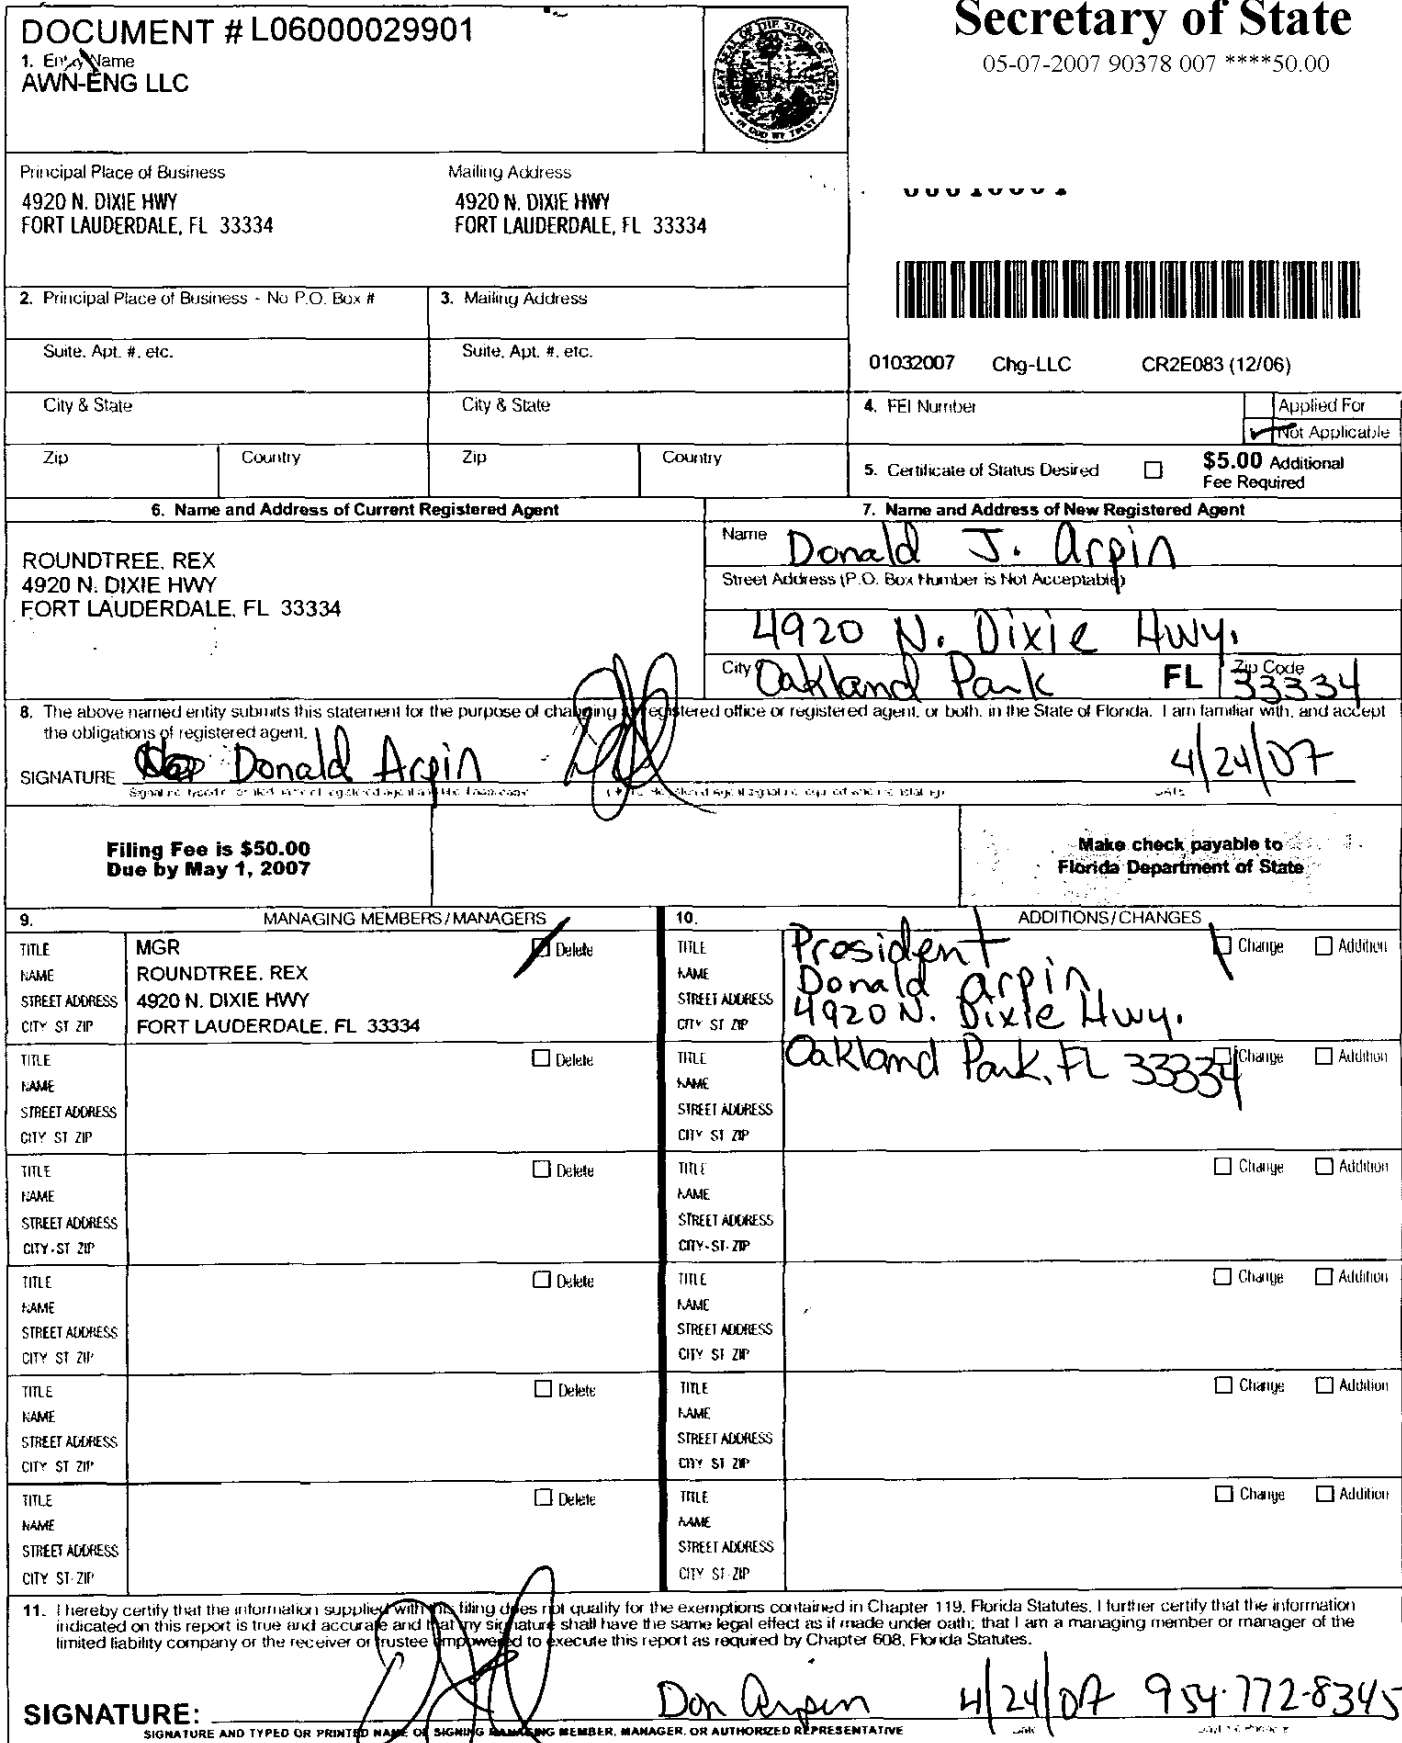 DOCUMENT # L06000029901
1. Entity Name
AWN-ENG LLC
Secretary of State
05-07-2007 90378 007 ****50.00
Principal Place of Business
4920 N. DIXIE HWY
FORT LAUDERDALE, FL 33334
Mailing Address
4920 N. DIXIE HWY
FORT LAUDERDALE, FL 33334
2. Principal Place of Business - No P.O. Box #
3. Mailing Address
Suite, Apt. #, etc.
Suite, Apt. #, etc.
01032007 Chg-LLC CR2E083 (12/06)
City & State
City & State
4. FEI Number
Applied For
Not Applicable
Zip
Country
Zip
Country
5. Certificate of Status Desired
$5.00 Additional
Fee Required
6. Name and Address of Current Registered Agent
7. Name and Address of New Registered Agent
ROUNDTREE, REX
4920 N. DIXIE HWY
FORT LAUDERDALE, FL 33334
Name Donald J. Arpin
Street Address (P.O. Box Number is Not Acceptable)
4920 N. Dixie Hwy.
City Oakland Park FL Zip Code 33334
8. The above named entity submits this statement for the purpose of changing its registered office or registered agent, or both, in the State of Florida. I am familiar with, and accept
the obligations of registered agent.
SIGNATURE Donald Arpin 4/24/07
DATE
Filing Fee is $50.00
Due by May 1, 2007
Make check payable to
Florida Department of State
9. MANAGING MEMBERS/MANAGERS
10. ADDITIONS/CHANGES
TITLE MGR Delete
NAME ROUNDTREE, REX
STREET ADDRESS 4920 N. DIXIE HWY
CITY ST ZIP FORT LAUDERDALE, FL 33334
TITLE President Change Addition
NAME Donald Arpin
STREET ADDRESS 4920 N. Dixie Hwy.
CITY ST ZIP
TITLE Delete
NAME
STREET ADDRESS
CITY ST ZIP
TITLE Oakland Park, FL 33334 Change Addition
NAME
STREET ADDRESS
CITY ST ZIP
TITLE Delete
NAME
STREET ADDRESS
CITY-ST ZIP
TITLE Change Addition
NAME
STREET ADDRESS
CITY-ST-ZIP
TITLE Delete
NAME
STREET ADDRESS
CITY ST ZIP
TITLE Change Addition
NAME
STREET ADDRESS
CITY ST ZIP
TITLE Delete
NAME
STREET ADDRESS
CITY ST ZIP
TITLE Change Addition
NAME
STREET ADDRESS
CITY ST ZIP
TITLE Delete
NAME
STREET ADDRESS
CITY ST-ZIP
TITLE Change Addition
NAME
STREET ADDRESS
CITY ST-ZIP
11. I hereby certify that the information supplied with this filing does not qualify for the exemptions contained in Chapter 119, Florida Statutes. I further certify that the information
indicated on this report is true and accurate and that my signature shall have the same legal effect as if made under oath; that I am a managing member or manager of the
limited liability company or the receiver or trustee empowered to execute this report as required by Chapter 608, Florida Statutes.
SIGNATURE: Don Arpin 4/24/07 954-772-8345
SIGNATURE AND TYPED OR PRINTED NAME OF SIGNING MANAGING MEMBER, MANAGER, OR AUTHORIZED REPRESENTATIVE